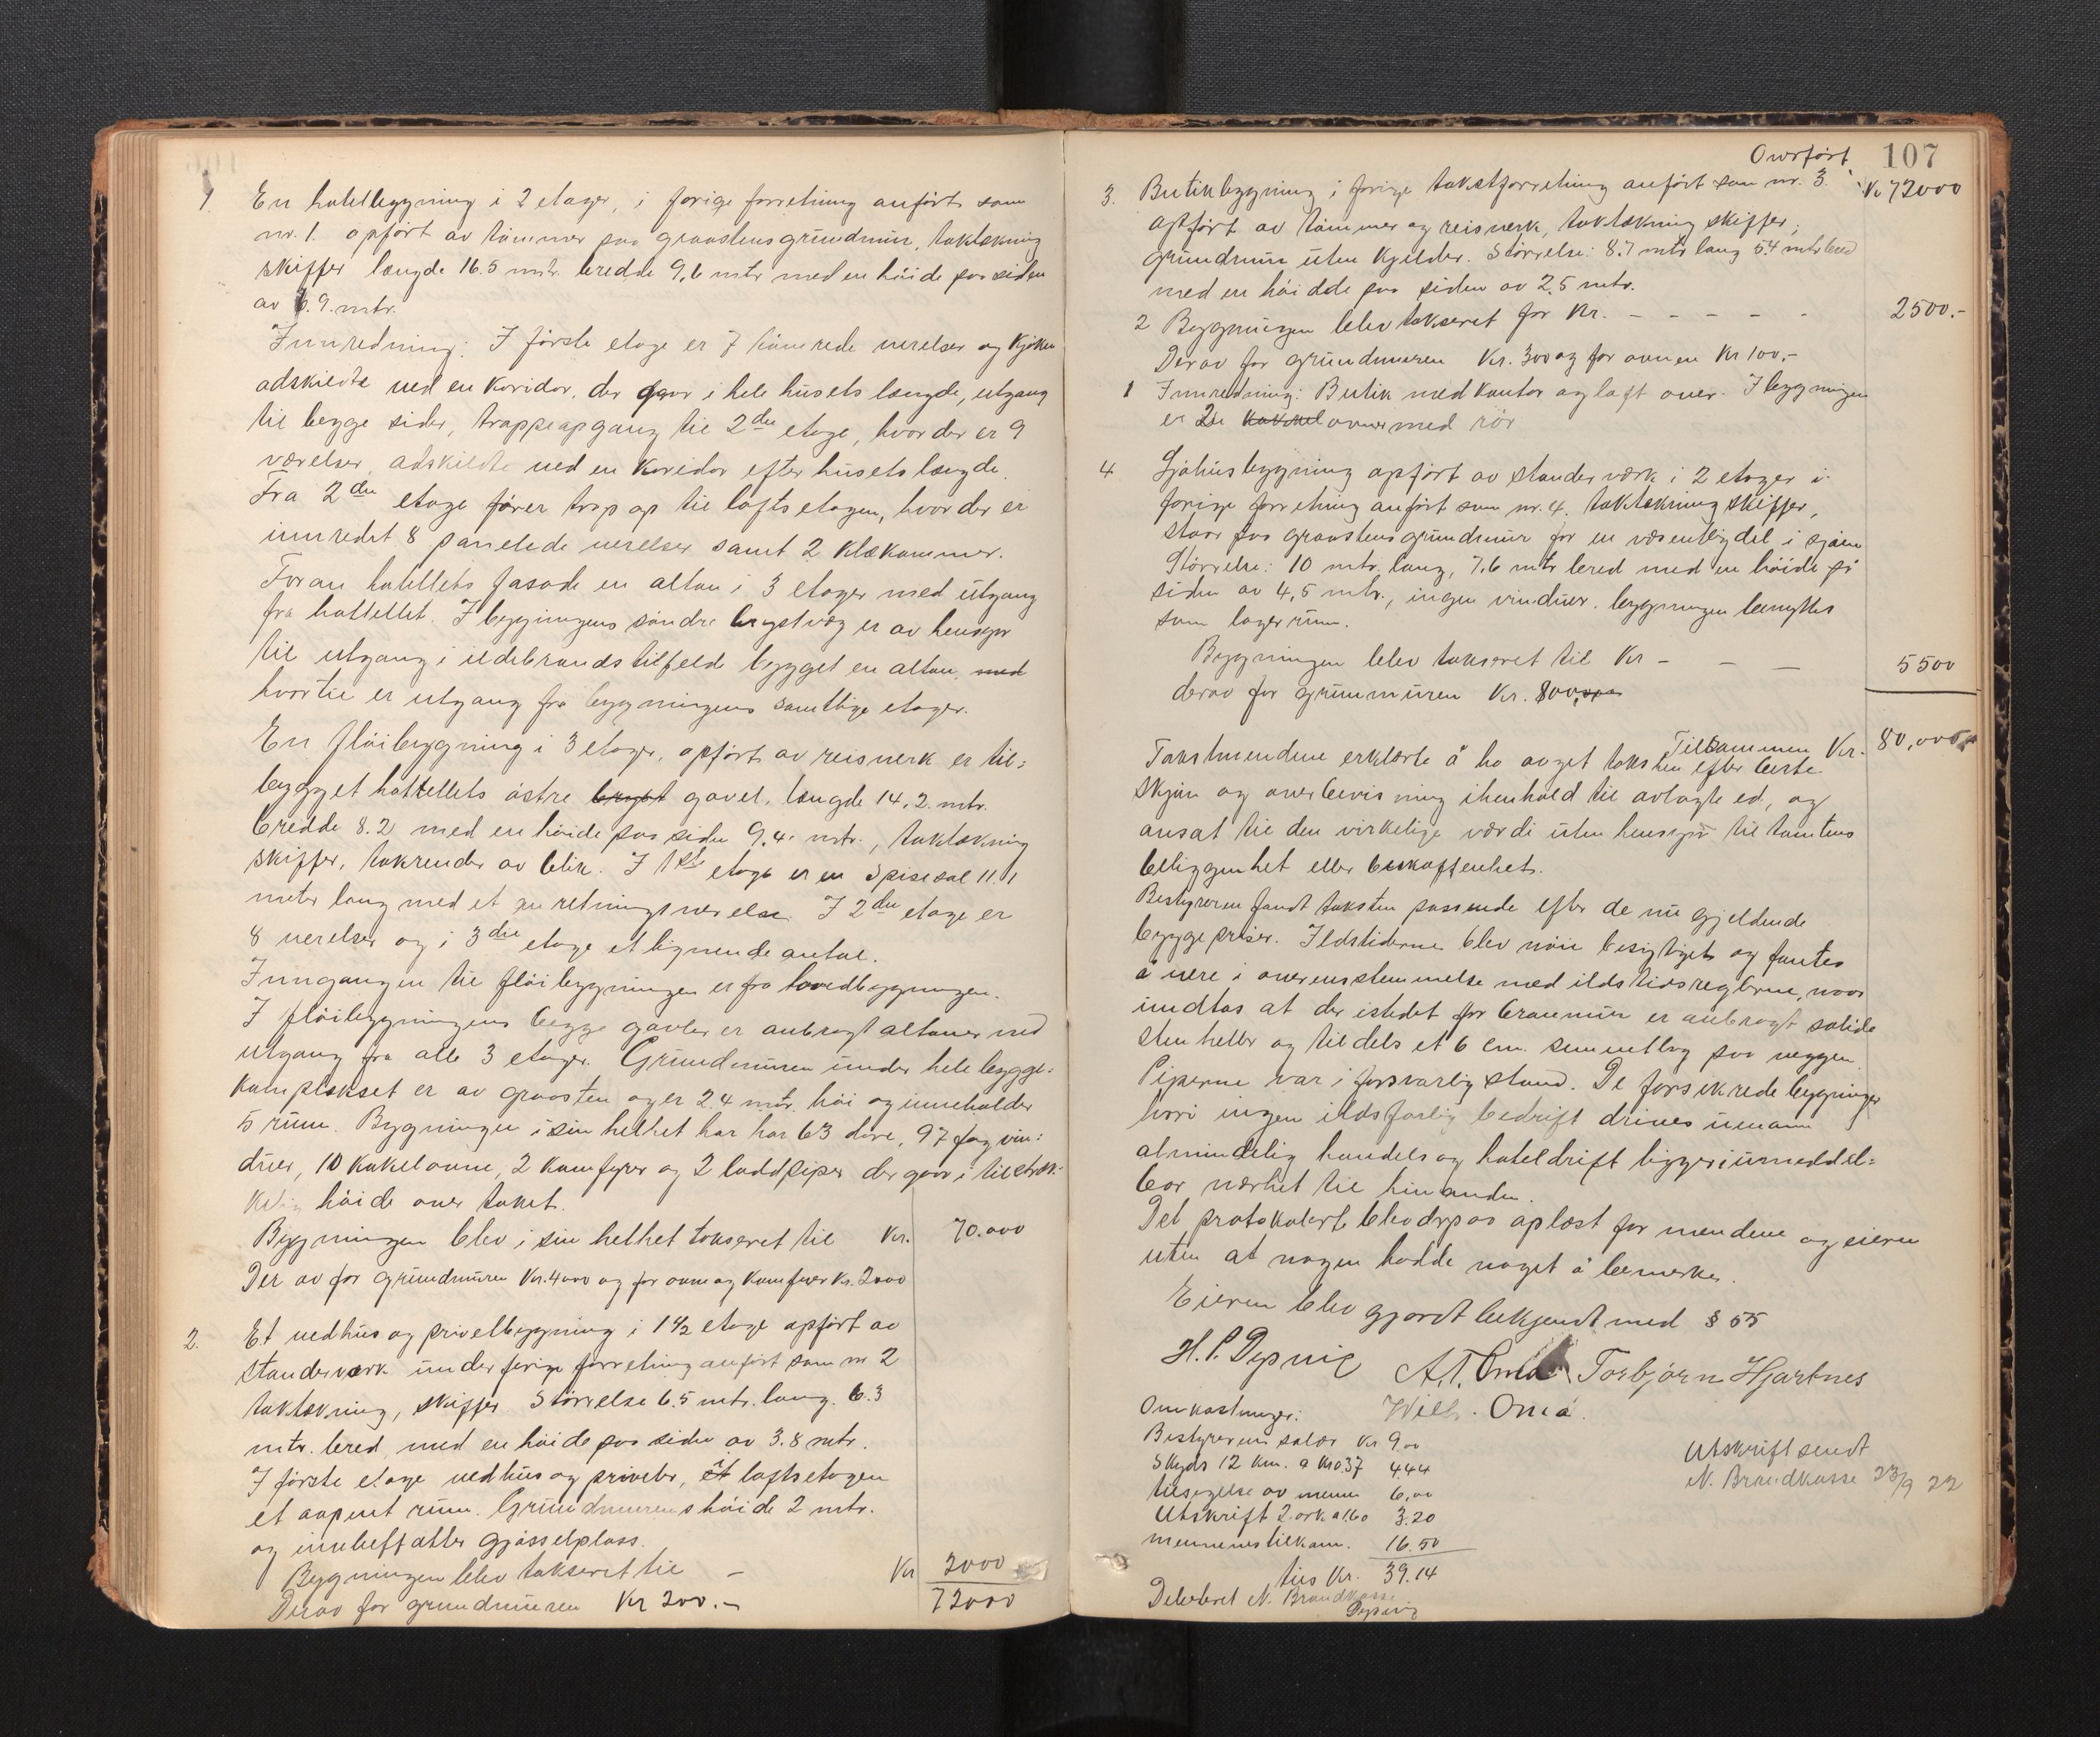 1. En hotelbygning i 2 etager, i forige forretning anført som
nr. 1. opført av tømmer paa graastensgrundmur, taktækning
skiffer længde 16.5 mtr. bredde 9,6 mtr med en höide paa siden
av 6.9. mtr.
Innredning: I förste etage er 7 værelser og kjöken
adskildte ved en Koridor, der gaar i hele husets længde, utgang
til begge sider, trappeopgang til 2den etage, hvor der er 9
værelser, adskildte ved en Koridor efter husets længde.
Fra 2den etage förer trap op til loftsetagen, hvor der er
innredet 8 panelede verelser samt 2 Klækammer.
Foran hotellets fasade en altan i 3 etager med utgang
fra hottellet. I bygningens söndre brystvæg er av hensyn
til utgang i ildebrandstilfelde bygget en altan, med
hvortil er utgang fra bygningens samtlige etager.
En flöibygning i 3 etager, opført av reisverk er til=
bygget hottellets östre bryst gavel, længde 14,2 mtr.
bredde 8.2 med en höide paa siden 9,4 mtr., taktækning
skiffer, takrender av blik. I 1ste etage er en Spisesal 11.1
meter lang med et anretningsverelse. I 2den etage er
8 verelser og i 3die etage et lignende antal.
Inngangen til flöibygningen er fra hovedbygningen.
I flöibygningens begge gavler er anbragt altaner med
utgang fra alle 3 etager. Grundmuren under hele bygge=
komplekset er av graasten og er 2.4 mtr. höi og inneholder
5 rum. Bygningen i sin helhet har har 63 döre, 97 fag vin=
duer, 10 kakelovne, 2 Komfyrer og 2 loddpiper der gaar i tilstræk=
kelig höide over taket.
Bygningen blev i sin helhet takseret til Kr. 70.000
Der av for grundmuren Kr. 4000 og for ovne og Komfyrer Kr. 2000
2. Et vedhus og privetbygning i 1 1/2 etage opført av
standerverk under forige forretning anført som nr 2
taktækning, skiffer. Störrelse 6.5 mtr. lang. 6.3
mtr. bred, med en höide paa siden av 3.8 mtr.
I förste etage vedhus og priveter, i loftsetagen
et aapent rum. Grundmurens höide 2 mtr.
og innbefatter gjösselplass.
Bygningen blev takseret til – Kr 2000
Derav for grundmuren Kr 200.– 72000
Overfört 107
3. Butikbygning i forige takstforretning anfört som nr. 3. Kr 72000
opfört av tömmer og reisverk, taktækning skiffer,
grundmur uten kjelder. Störrelse: 8.7 mtr lang 5.4 mtr bred
med en höidde paa siden av 2,5 mtr.
2 Bygningen blev takseret for Kr. – – – – – 2500.–
Derav for grundmuren Kr. 300 og for ovnen Kr 100,–
1 Innredning: Butik med Kontor og loft over. I bygningen
er 2 kakkel ovner med rör
4. Sjöhusbygning opfört av standerværk i 2 etager i
forige forretning anfört som nr. 4. taktækning skiffer,
staar paa graastensgrundmur for en væsentlig del i sjöen
Störrelse: 10 mtr. lang, 7,6 mtr bred med en höide på
siden av 4,5 mtr., ingen vinduer. bygningen benyttes
som lagerrum.
Bygningen blev takseret til Kr – – – 5500
derav for grunnmuren Kr. 800,
Tilsammen Kr. 80,000
Takstmendene erklærte å ha avget taksten efter beste
skjön og overbevisning ihenhold til avlagte ed, og
ansat til den virkelige værdi uten hensyn til tomtens
beliggenhet eller beskaffenhet.
Bestyreren fandt taksten passende efter de nu gjeldende
byggepriser. Ildstederne blev nöie besigtiget og fantes
å vere i overensstemmelse med ildstedsreglerne, naar
undtas at der istedet for branmur er anbragt solide
stenheller og tildels et 6 cm. sementlag paa veggen.
Piperne var i forsvarlig stand. De forsikrede bygninger
hvori ingen ildsfarlig bedrift drives unntann
almindelig handels og hoteldrift ligger i umeddel=
bar nærhet til hinanden.
Det protokolert blev derpaa oplæst for mendene og eieren
uten at nogen hadde noget å bemerke.
Eieren blev gjordt bekjendt med § 55
H. P. Dypvig A. T. Omå Torbjörn Hjartnes
Wilh. Omå.
Omkostninger:
Bestyrerens salær Kr 9,00
Skyds 12 Km. a Kr 0.37 4.44
tilsigelse av menn 6,00
Utskrift 2 ark a 1.60 3.20
mennenes tilkom. 16.50
tils Kr. 39.14
Utskrift sendt
N. Brandkasse 23/9 22
Debeteret N. Brandkasse
Dypvig